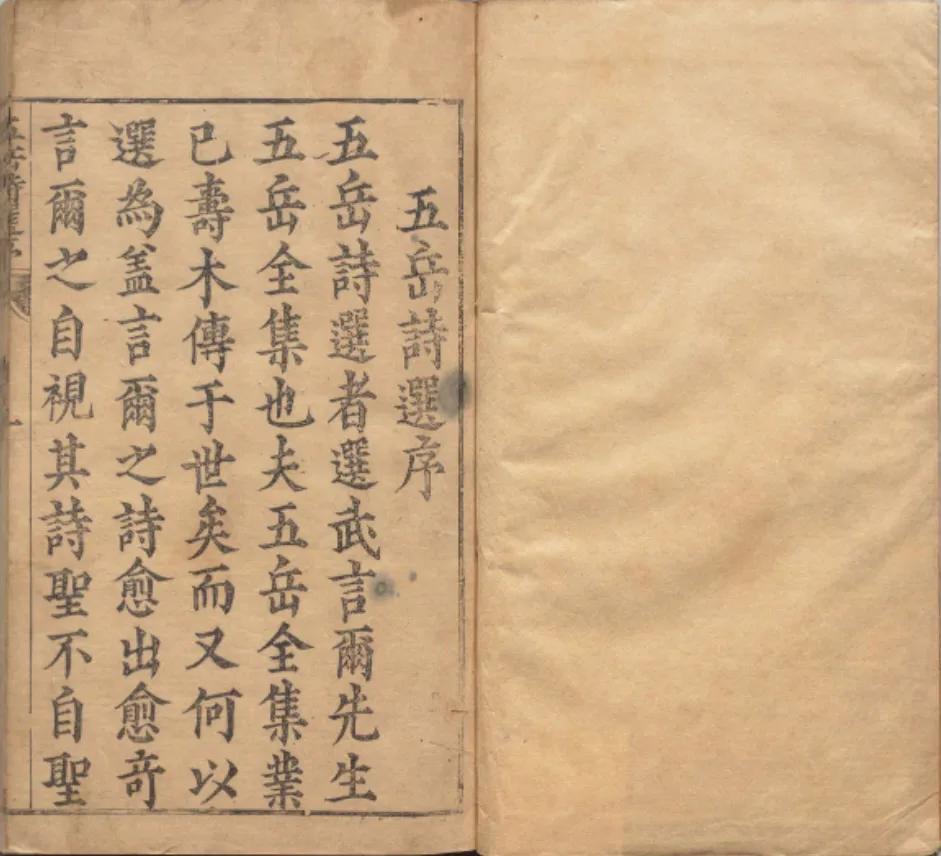 五岳詩選序
五岳詩選者選武言爾先生
五岳全集也夫五岳全集業
已壽木傳于世矣而又何以
選為盖言爾之詩愈出愈竒
言爾之自視其詩聖不自聖